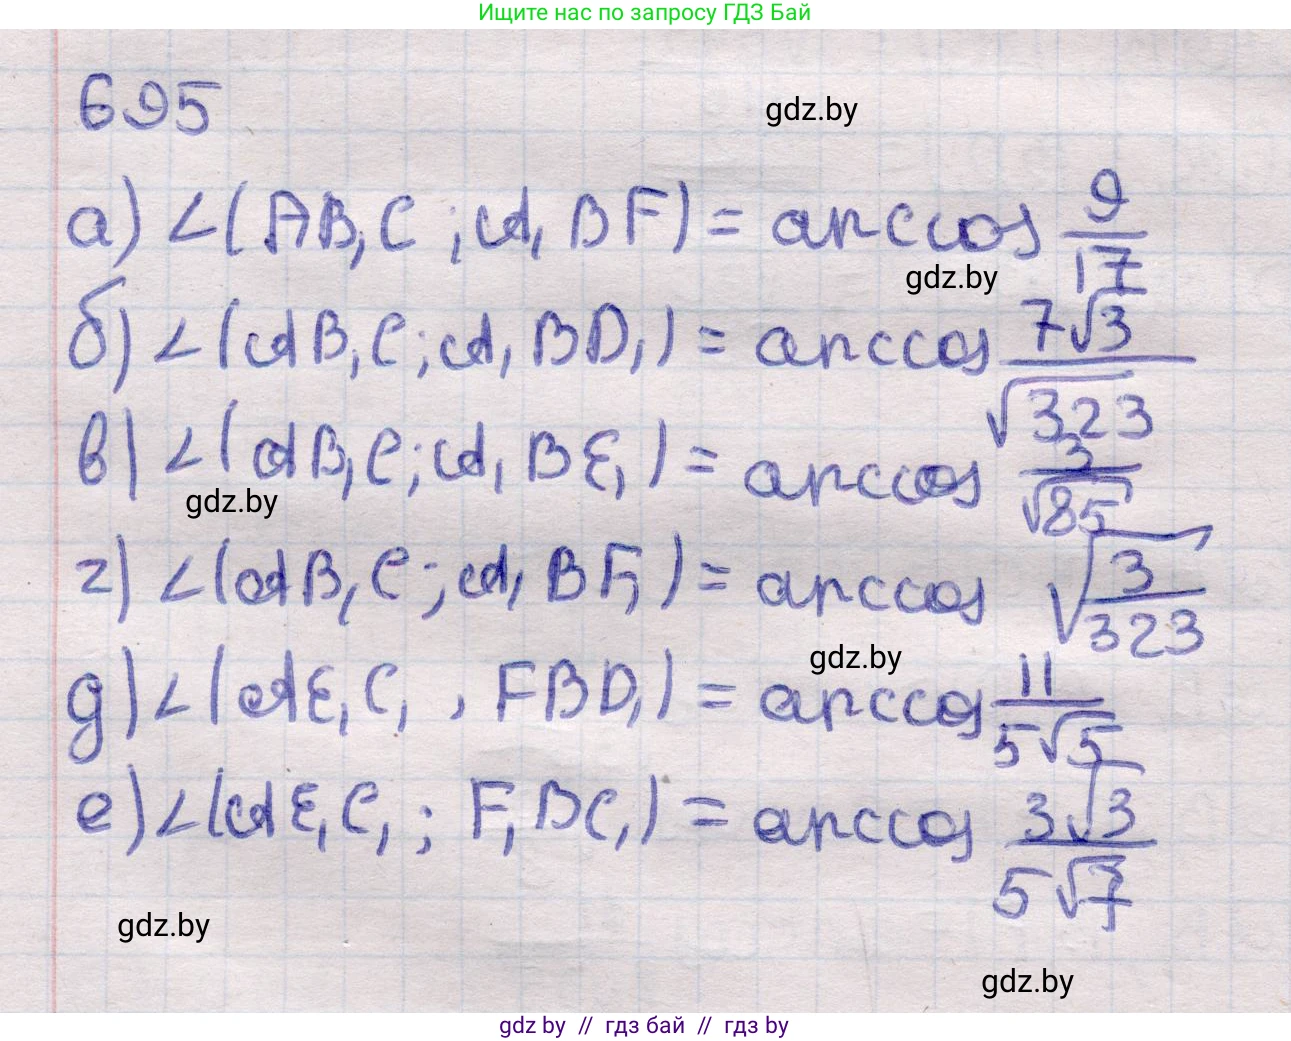 Ищите нас по запросу ГДЗ Бай
695
gdz.by
а) ∠(AB₁C ; A₁BF) = arccos 9/17
gdz.by
б) ∠(AB₁C ; A₁BD₁) = arccos 7√3/√323
в) ∠(AB₁C ; A₁BE₁) = arccos 3/√85
gdz.by
г) ∠(AB₁C ; A₁BF₁) = arccos √(3/323)
gdz.by
д) ∠(AE₁C₁ , FBD₁) = arccos 11/5√5
е) ∠(AE₁C₁ ; F₁BC₁) = arccos 3√3/5√7
gdz.by
gdz.by
gdz by // гдз бай // гдз by